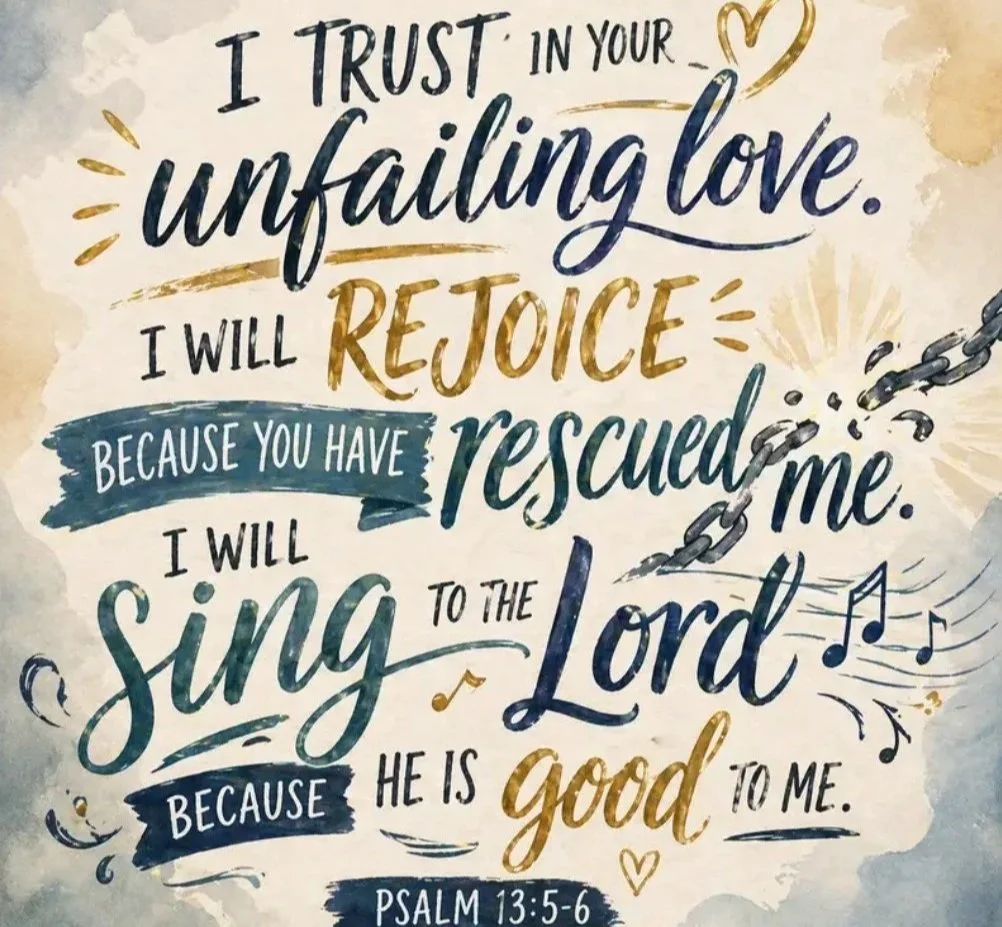 I TRUST IN YOUR
unfailing love.
I WILL REJOICE
BECAUSE YOU HAVE rescued me.
I WILL
Sing TO THE Lord
BECAUSE HE IS good TO ME.
PSALM 13:5-6